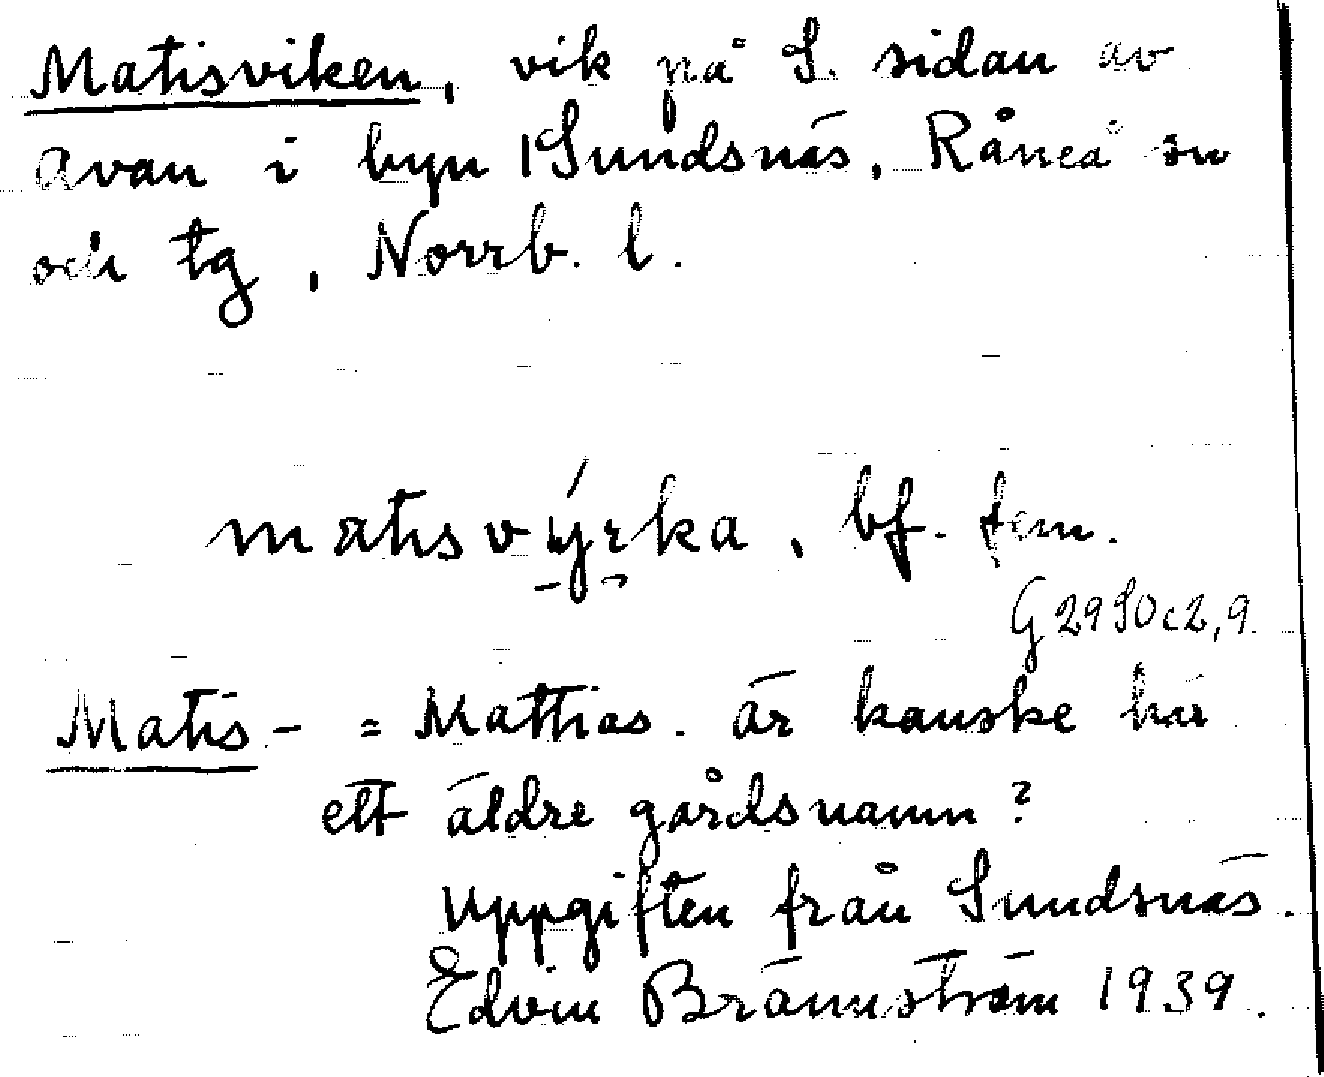 Matisviken, vik på S. sidan av
avan i byn Sundsnäs, Råneå sn
och tg, Norrb. l.
matısvýrka, bf. fem.
G 29
Matis- = Mattias. är kanske här
ett äldre gårdsnamn?
Uppgiften från Sundsnäs.
Edvin Brännström 1939.